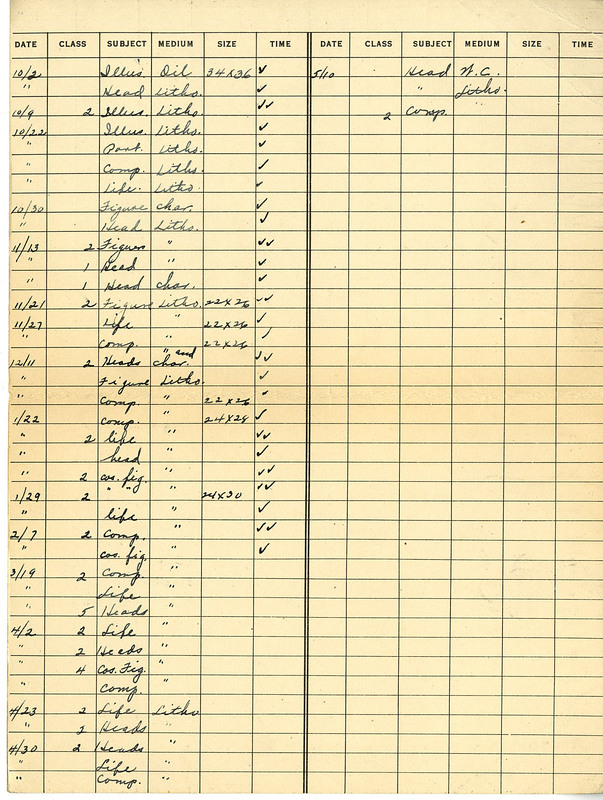 DATE CLASS SUBJECT MEDIUM SIZE TIME DATE CLASS SUBJECT MEDIUM SIZE TIME
10/2 Illus. Oil 34X36 ✓
" Head Litho. ✓
10/9 2 Illus. Litho. ✓✓
10/22 Illus. Litho. ✓
" Port. Litho. ✓
" Comp. Litho. ✓
" Life. Litho. ✓
10/30 Figure char. ✓
" Head Litho. ✓
11/13 2 Figures " ✓✓
" 1 Head " ✓
" 1 Head char. ✓
11/21 2 Figure Litho. 22X26 ✓✓
11/27 Life " 22X26 ✓
" Comp. " 22X26 ✓
12/11 2 Heads " and char. ✓✓
" Figure Litho. ✓
" Comp. " 22X26 ✓
1/22 Comp. " 24X28 ✓
" 2 life " ✓✓
" head " ✓
" 2 cos. fig. " ✓✓
1/29 2 " " " 24X30 ✓✓
" life " ✓
2/7 2 Comp. " ✓✓
" cos. fig. " ✓
3/19 2 Comp. "
" Life "
" 5 Heads "
4/2 2 Life "
" 2 Heads "
" 4 Cos. Fig. "
" Comp. "
4/23 2 Life Litho
" 2 Heads "
4/30 2 Heads "
" Life "
" Comp. "
5/10 Head W.C.
" Litho.
2 Comp.